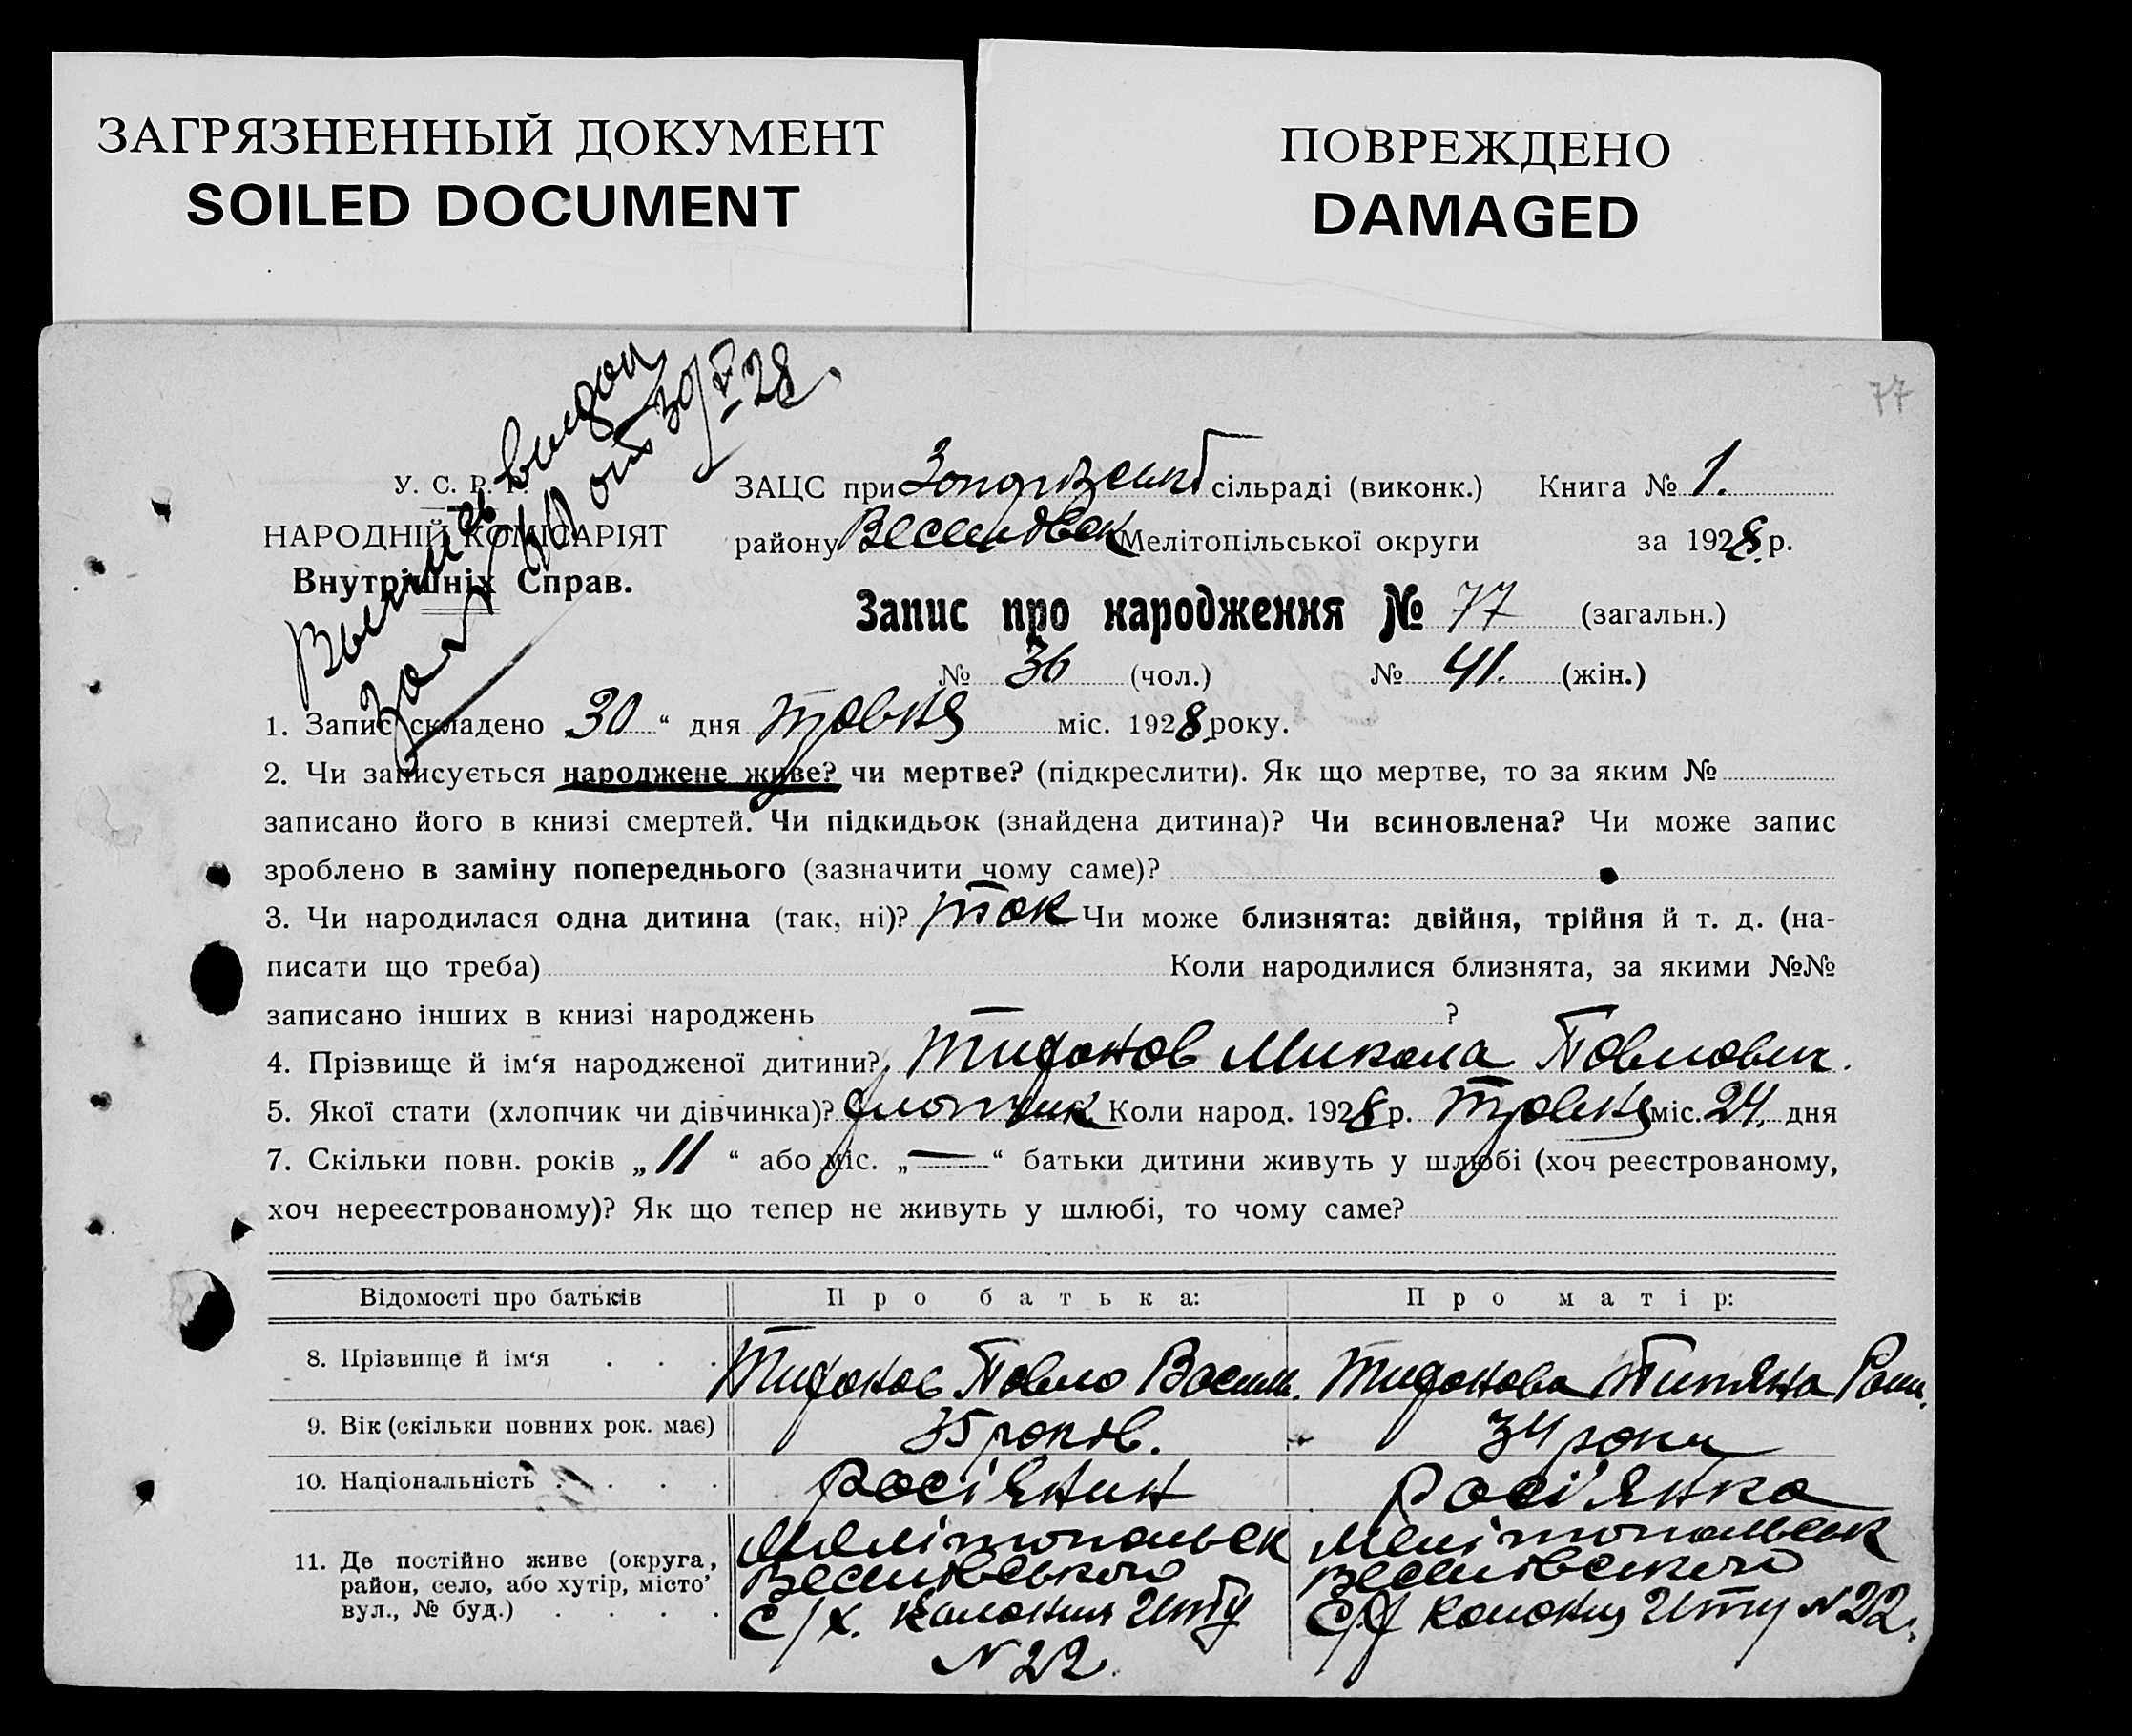 ЗАГРЯЗНЕННЫЙ ДОКУМЕНТ
SOILED DOCUMENT
ПОВРЕЖДЕНО
DAMAGED
77
30/V 28
У. С. Р. Р.
НАРОДНІЙ КОМІСАРІЯТ
Внутрішніх Справ.
ЗАЦС при сільраді (виконк.) Книга № 1.
району Веселівськ Мелітопільської округи за 1928 р.
Запис про народження № 77 (загальн.)
№ 36 (чол.) № 41. (жін.)
1. Запис складено 30 " дня травня міс. 1928 року.
2. Чи записується народжене живе? чи мертве? (підкреслити). Як що мертве, то за яким №
записано його в книзі смертей. Чи підкидьок (знайдена дитина)? Чи всиновлена? Чи може запис
зроблено в заміну попереднього (зазначити чому саме)?
3. Чи народилася одна дитина (так, ні)? так Чи може близнята: двійня, трійня й т. д. (на-
писати що треба) Коли народилися близнята, за якими №№
записано інших в книзі народжень ?
4. Прізвище й ім'я народженої дитини? Тифонов Микола Павлович.
5. Якої стати (хлопчик чи дівчинка)? хлопчик Коли народ. 1928 р. травня міс. 24. дня
7. Скільки повн. років „ 11 " або міс. „ — " батьки дитини живуть у шлюбі (хоч реєстрованому,
хоч нереєстрованому)? Як що тепер не живуть у шлюбі, то чому саме?
Відомості про батьків Про батька: Про матір:
8. Прізвище й ім'я . . . Тифонов Павло Васил. Тифонова Титяна
9. Вік (скільки повних рок. має) 35 років. 34 роки
10. Національність . . . . росі'янин росі'янка
11. Де постійно живе (округа,
район, село, або хутір, місто,
вул., № буд.) . . . .
Мелітопольськ
Веселівського
С/х. Калония
N 22.
Мелітопольськ
Веселівського
Колония N 22.